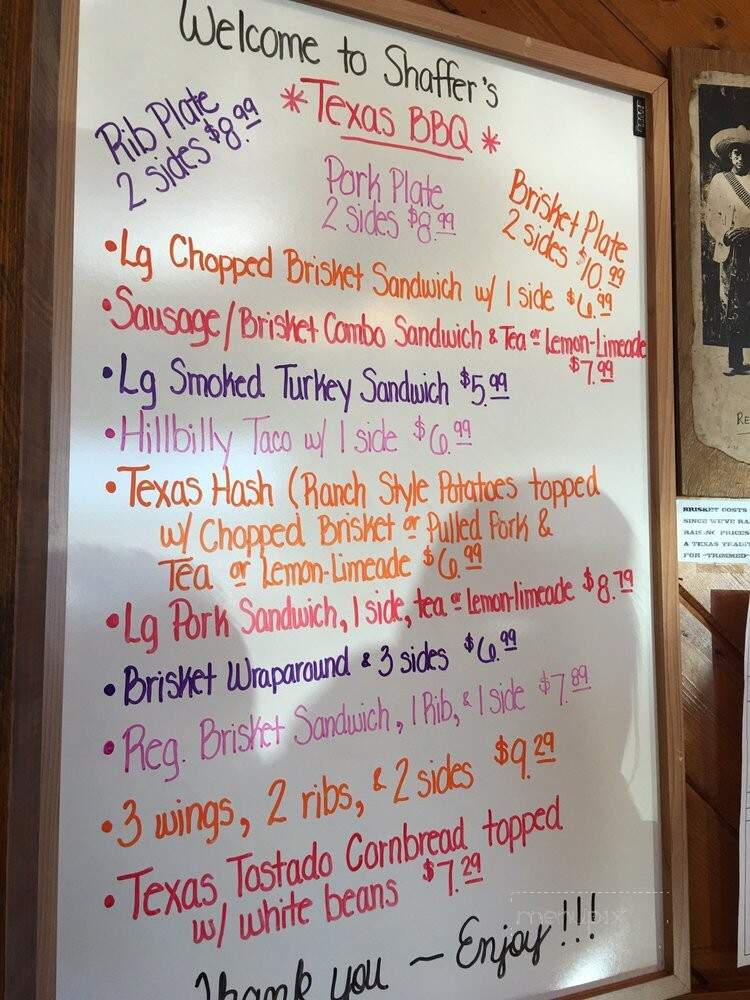 Welcome to Shaffer's
*Texas BBQ*
Rib Plate
2 sides $8.99
Pork Plate
2 sides $8.99
Brisket Plate
2 sides $10.99
• Lg Chopped Brisket Sandwich w/ 1 side $6.99
• Sausage/Brisket Combo Sandwich & Tea or Lemon-Limeade
$7.99
• Lg Smoked Turkey Sandwich $5.99
• Hillbilly Taco w/ 1 side $6.99
• Texas Hash (Ranch Style Potatoes topped
w/ Chopped Brisket or Pulled Pork &
Tea or Lemon-Limeade $6.99
• Lg Pork Sandwich, 1 side, tea or Lemon-limeade $8.79
• Brisket Wraparound & 3 sides $6.99
• Reg. Brisket Sandwich, 1 Rib, & 1 side $7.89
• 3 wings, 2 ribs, & 2 sides $9.29
• Texas Tostado Cornbread topped
w/ white beans $7.29
Thank you ~ Enjoy!!!
menupix
RE
BRISKET COSTS
SINCE WE'VE RA
PRICES
A TEXAS TRADI
FOR "TRIMMED"